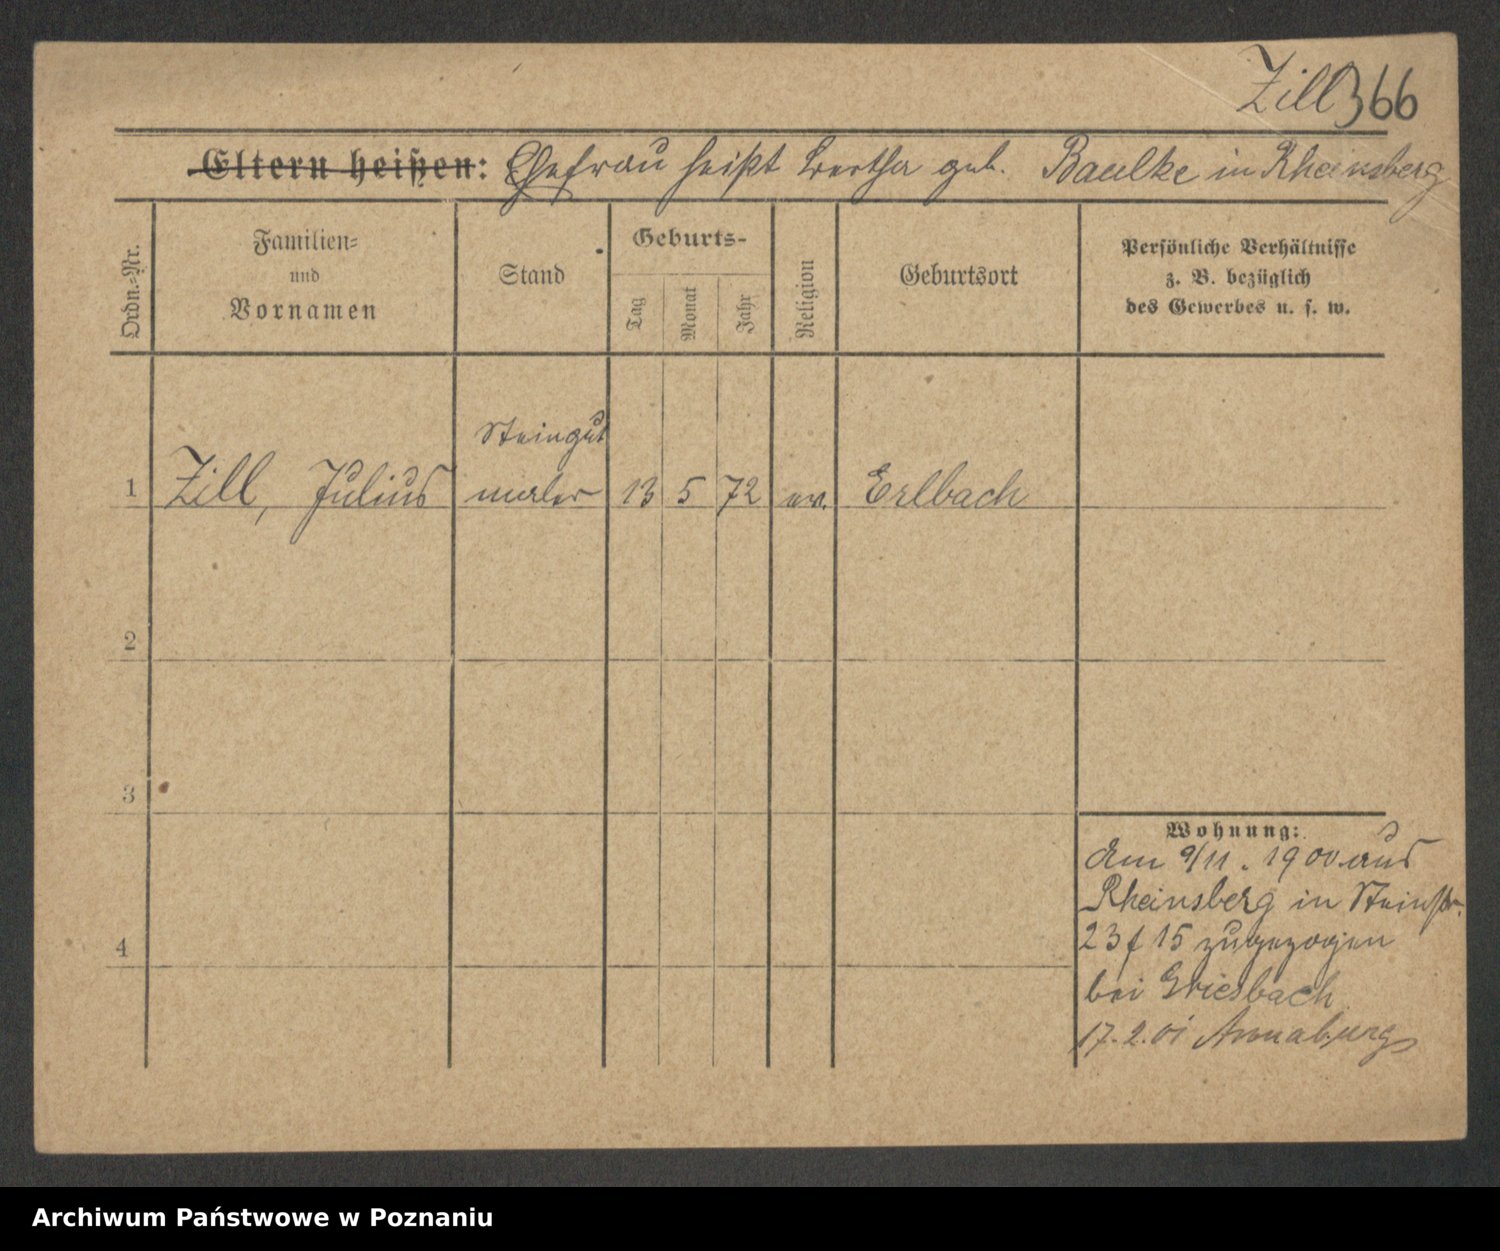 Zill 366
Eltern heißen: Ehefrau heißt Bertha geb. Baulke in Rheinsberg
Ordn.-Nr.
Familien-
und
Vornamen
Stand
Geburts-
Tag
Monat
Jahr
Religion
Geburtsort
Persönliche Verhältnisse
z. B. bezüglich
des Gewerbes u. s. w.
Steingut
1 Zill, Julius maler 13 5 72 ev. Erlbach
2
3
4
Wohnung:
Am 9/11. 1900 aus
Rheinsberg in Steinstr.
23 f 15 zugezogen
bei Griesbach
17.2.01 Annaburg
Archiwum Państwowe w Poznaniu